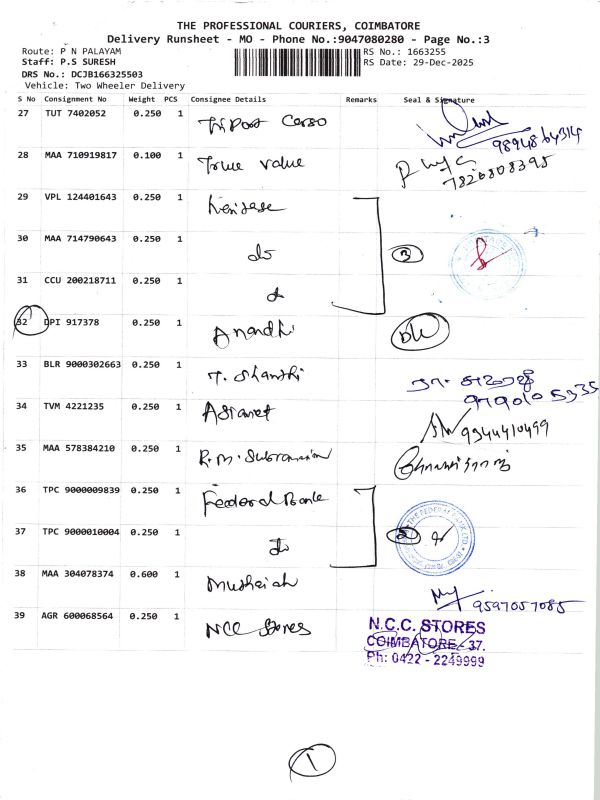 THE PROFESSIONAL COURIERS, COIMBATORE
Delivery Runsheet - MO - Phone No.:9047080280 - Page No.:3
Route: P N PALAYAM
RS No.: 1663255
Staff: P.S SURESH
RS Date: 29-Dec-2025
DRS No.: DCJB166325503
Vehicle: Two Wheeler Delivery
S No Consignment No Weight PCS Consignee Details Remarks Seal & Signature
27 TUT 7402052 0.250 1
9894864314
28 MAA 710919817 0.100 1 True value
7826808395
29 VPL 124401643 0.250 1
30 MAA 714790643 0.250 1 do 3
31 CCU 200218711 0.250 1 do
32 DPI 917378 0.250 1 Anandhi
33 BLR 9000302663 0.250 1 T. Shanthi
34 TVM 4221235 0.250 1 Asianet
9344410499
35 MAA 578384210 0.250 1 R.M. Subramanian
36 TPC 9000009839 0.250 1 Federal Bank
37 TPC 9000010004 0.250 1 do 2
THE FEDERAL BANK LTD.
38 MAA 304078374 0.600 1 Muthaiah
9597057085
39 AGR 600068564 0.250 1 NCC Stores
N.C.C. STORES
COIMBATORE - 37.
Ph: 0422 - 2249999
1